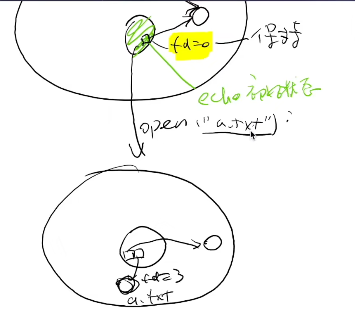 fd=0
保持
echo 初始状态
open("a.txt");
fd=3
a.txt